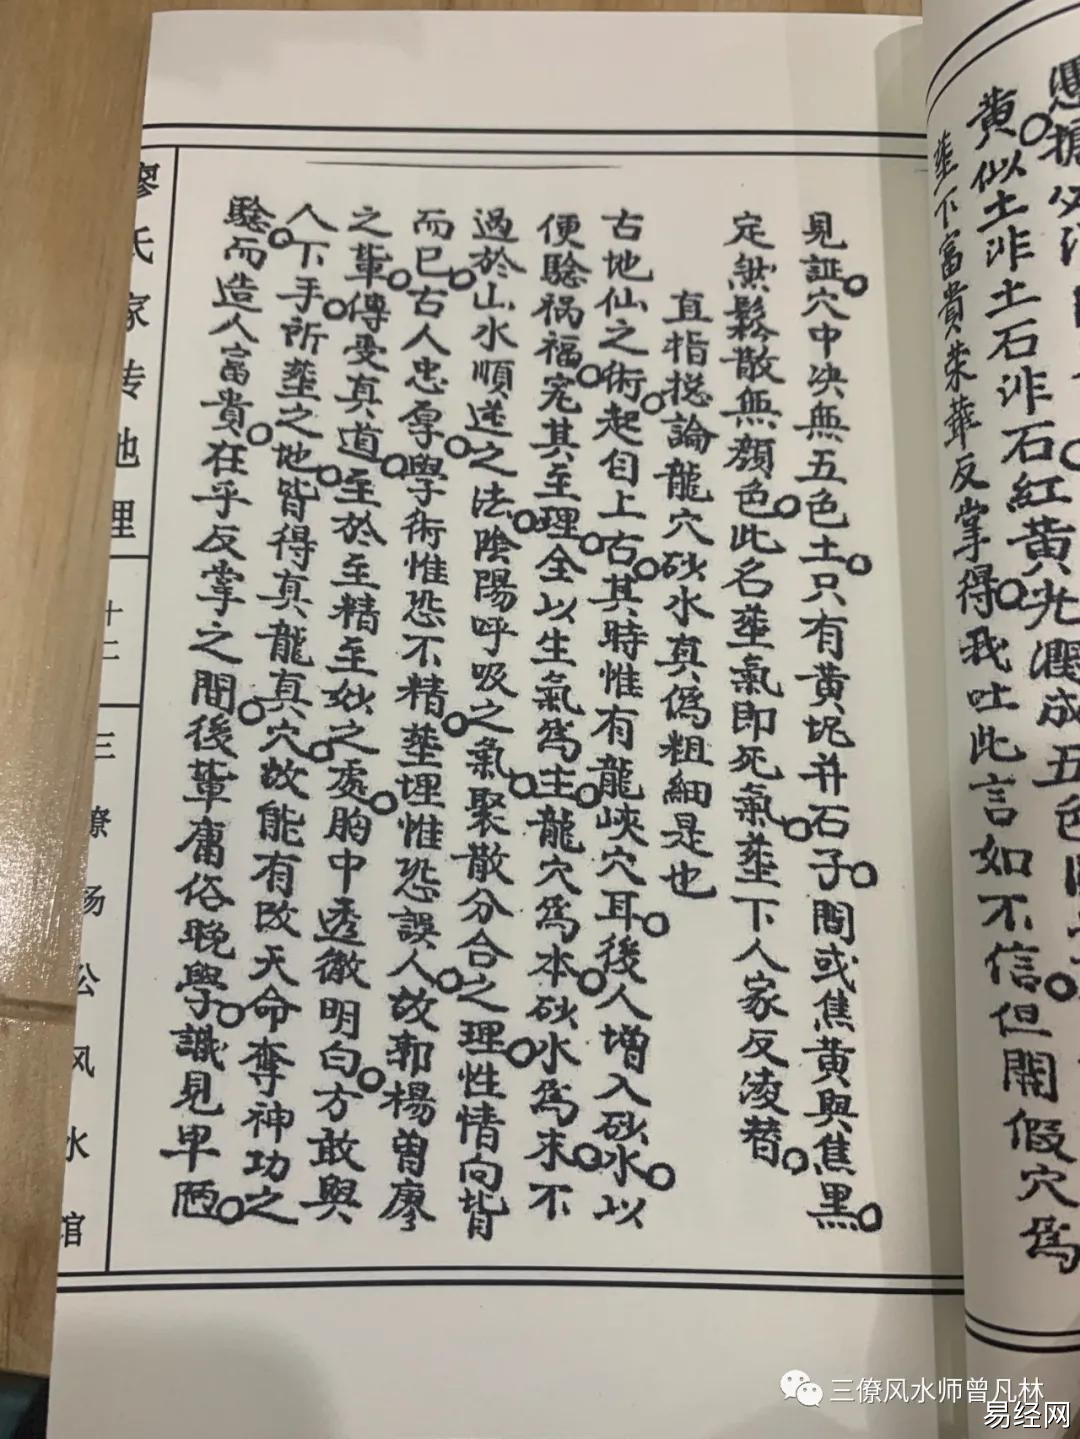 黄似土非土石非石紅黄光潤成五色
莝下富貴荣華反掌得我吐此言如不信但開假穴為
見証穴中决無五色土只有黄坭并石子間或焦黄與焦黑
定然鬆散無顔色此名莝氣即死氣莝下人家反凌替
直指総論龍穴砂水真偽粗細是也
古地仙之術起自上古其時惟有龍峽穴耳後人增入砂水以
便驗祸福究其至理全以生氣為主龍穴為本砂水為末不
過於山水順逆之法陰陽呼吸之氣聚散分合之理性情向背
而已古人忠厚學術惟恐不精莝埋惟恐誤人故郭楊曽廖
之輩傳受真道至於至精至妙之處胸中透徹明白方敢與
人下手所莝之地皆得真龍真穴故能有改天命奪神功之
驗而造人富貴在乎反掌之間後輩庸俗晚學識見卑陋
廖氏家传地理
十二
三僚杨公风水馆
三僚风水师曾凡林
易经网